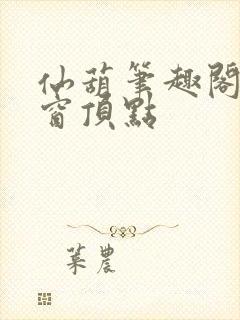 仙葫筆趣閣
窗頂點
葉農